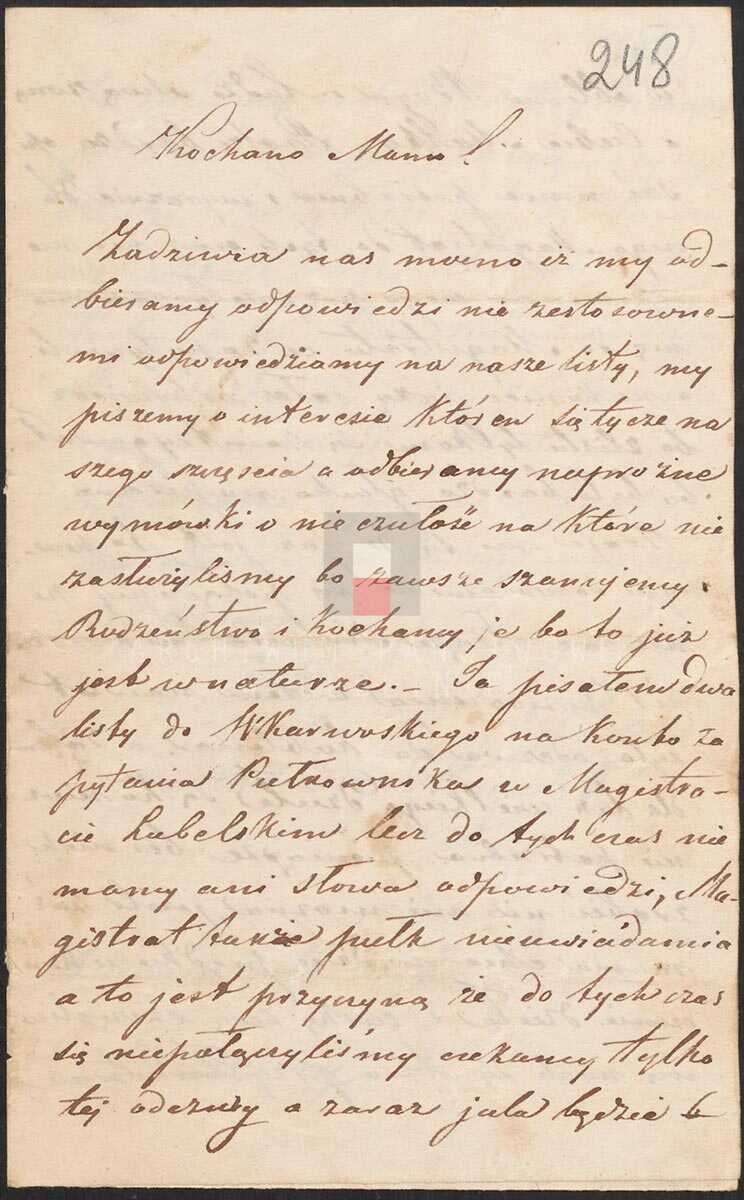 248
Kochano Mamo!
Zadziwia nas mocno iż my od-
bieramy odpowiedzi nie zestosowne-
mi odpowiedziamy na nasze listy, my
piszemy o interesie którен się tycze na
szego szczęścia a odbieramy napróżne
wymówki o nie czułość na które nie
zasłużyliśmy bo zawsze szanujemy
Rodzeństwo i kochamy je bo to już
jest w naturze. – Ja pisałem dwa
listy do WKarwoskiego na konto za
pytania Pułkownika w Magistra-
cie Lubelskim lecz do tych czas nie
mamy ani słowa odpowiedzi, Ma-
gistrat także pułk nieuwiadamia
a to jest przyczyną że do tych czas
się niepołączyliśmy czekamy tylko
tej odezwy a zaraz jak będzie